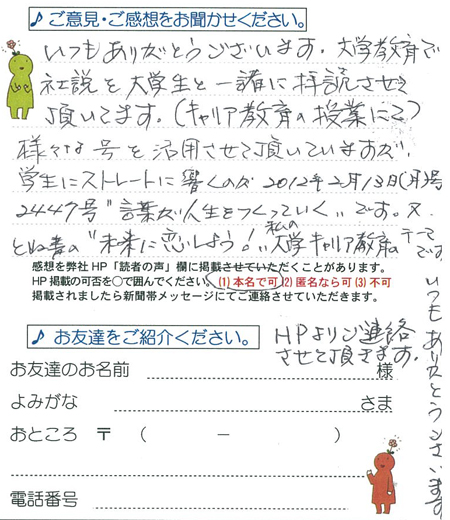 ♪ ご意見・ご感想をお聞かせください。
いつもありがとうございます。大学教育で
社説を大学生と一諸に拝読させて
頂いてます。(キャリア教育の授業にて)
様々な号を活用させて頂いていますが、
学生にストレートに響くのが2012年2月13日(月)号
2447号"言葉が人生をつくっていく"です。又、
"未来に恋しよう!"私の大学キャリア教育のテーマです
いつもありがとうございます
感想を弊社HP「読者の声」欄に掲載させていただくことがあります。
HP掲載の可否を○で囲んでください。(1) 本名で可 (2) 匿名なら可 (3) 不可
掲載されましたら新聞帯メッセージにてご連絡させていただきます。
♪ お友達をご紹介ください。
HPよりご連絡
させて頂きます。
お友達のお名前 様
よみがな さま
おところ 〒 ( − )
電話番号